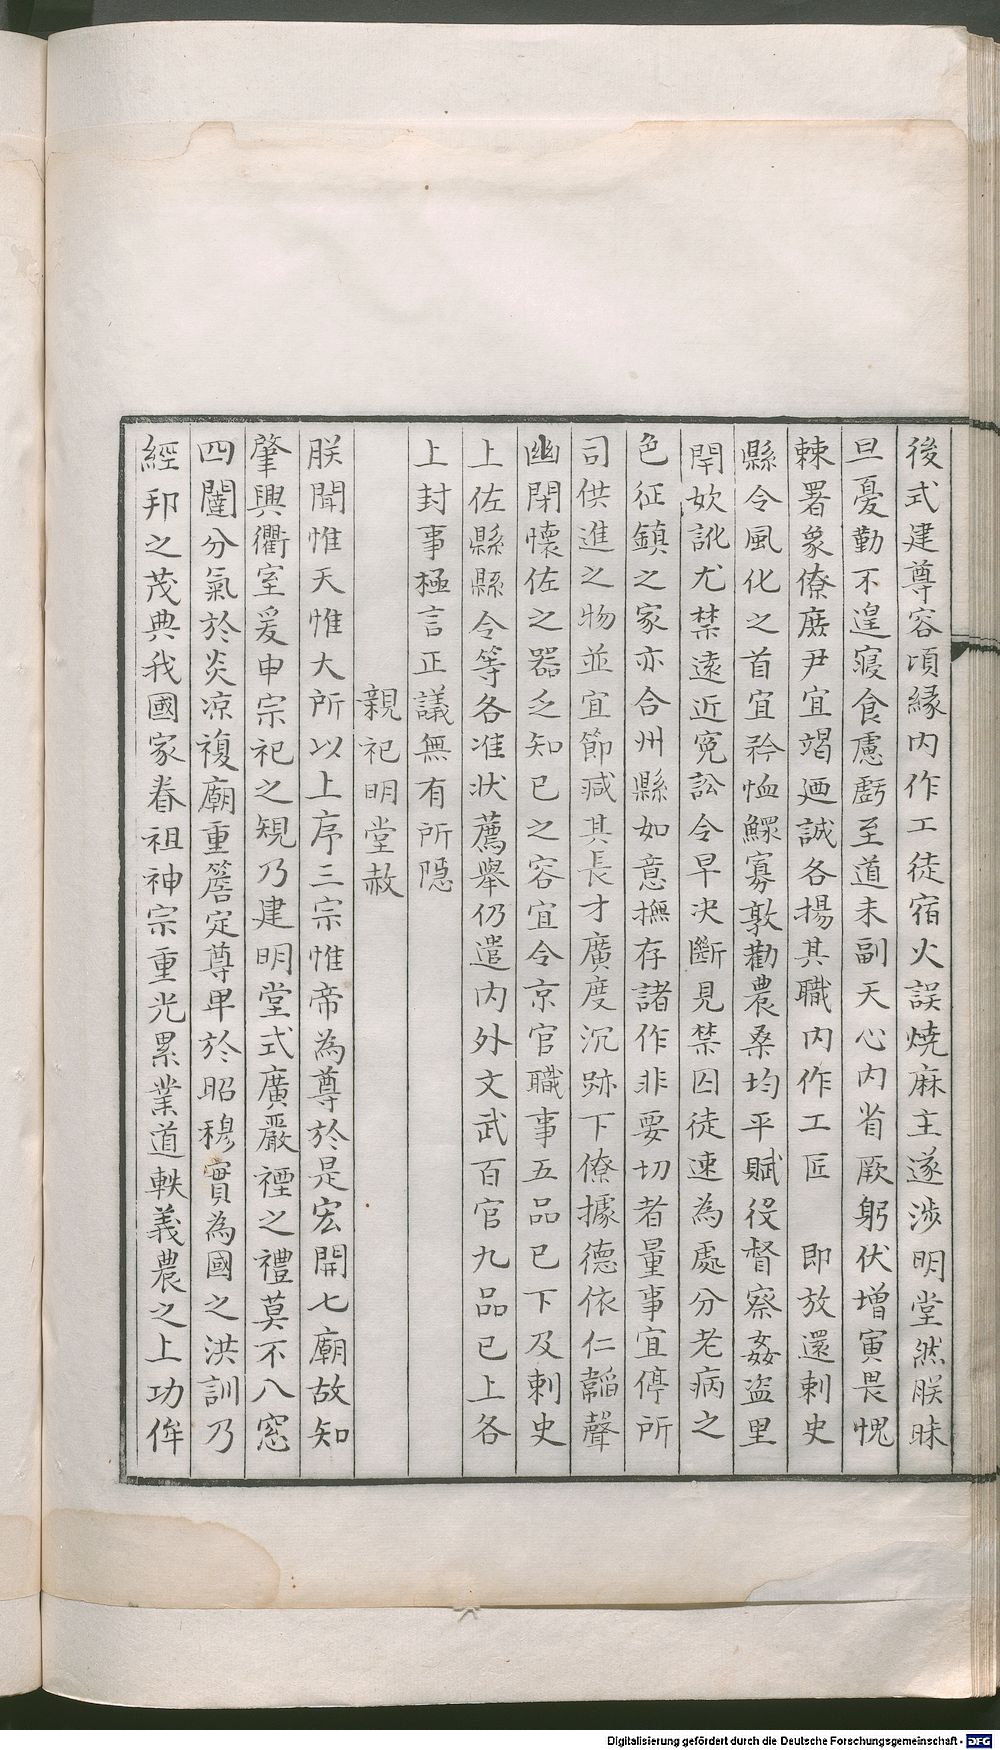 後式建尊容頃緣内作工徒宿火誤燒麻主遂涉明堂然朕昧
旦憂勤不遑寢食慮虧至道未副天心内省厥躬伏增寅畏愧
棘署象僚庶尹宜竭廼誠各揚其職内作工匠 即放還刺史
縣令風化之首宜矜恤鰥寡敦勸農桑均平賦役督察姦盗里
閈妖訛尤禁遠近寃訟令早决斷見禁囚徒速為處分老病之
色征鎮之家亦合州縣如意撫存諸作非要切者量事宜停所
司供進之物並宜節减其長才廣度沉跡下僚據德依仁韜聲
幽閉懷佐之器乏知已之容宜令京官職事五品已下及刺史
上佐縣縣令等各准状薦舉仍遣内外文武百官九品已上各
上封事極言正議無有所隱
親祀明堂赦
朕聞惟天惟大所以上序三宗惟帝為尊於是宏開七廟故知
肇興衢室爰申宗祀之䂓乃建明堂式廣嚴禋之禮莫不八窓
四闥分氣於炎凉複廟重簷定尊卑於昭穆實為國之洪訓乃
經邦之茂典我國家眷祖神宗重光累業道軼義農之上功侔
Digitalisierung gefördert durch die Deutsche Forschungsgemeinschaft - DFG